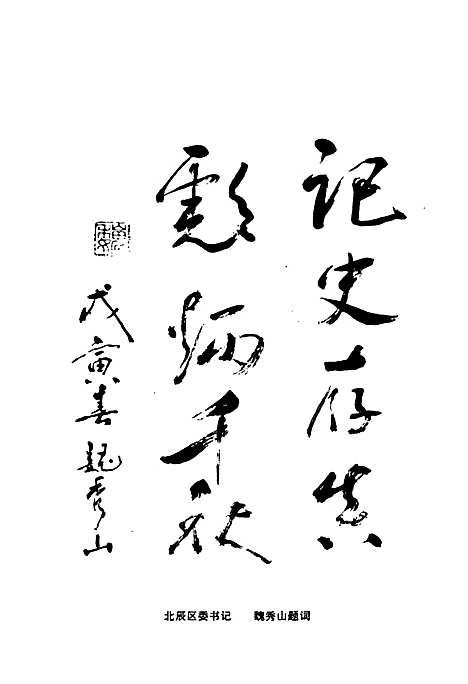 记史存真
彪炳千秋
戊寅春魏秀山
北辰区委书记 魏秀山题词